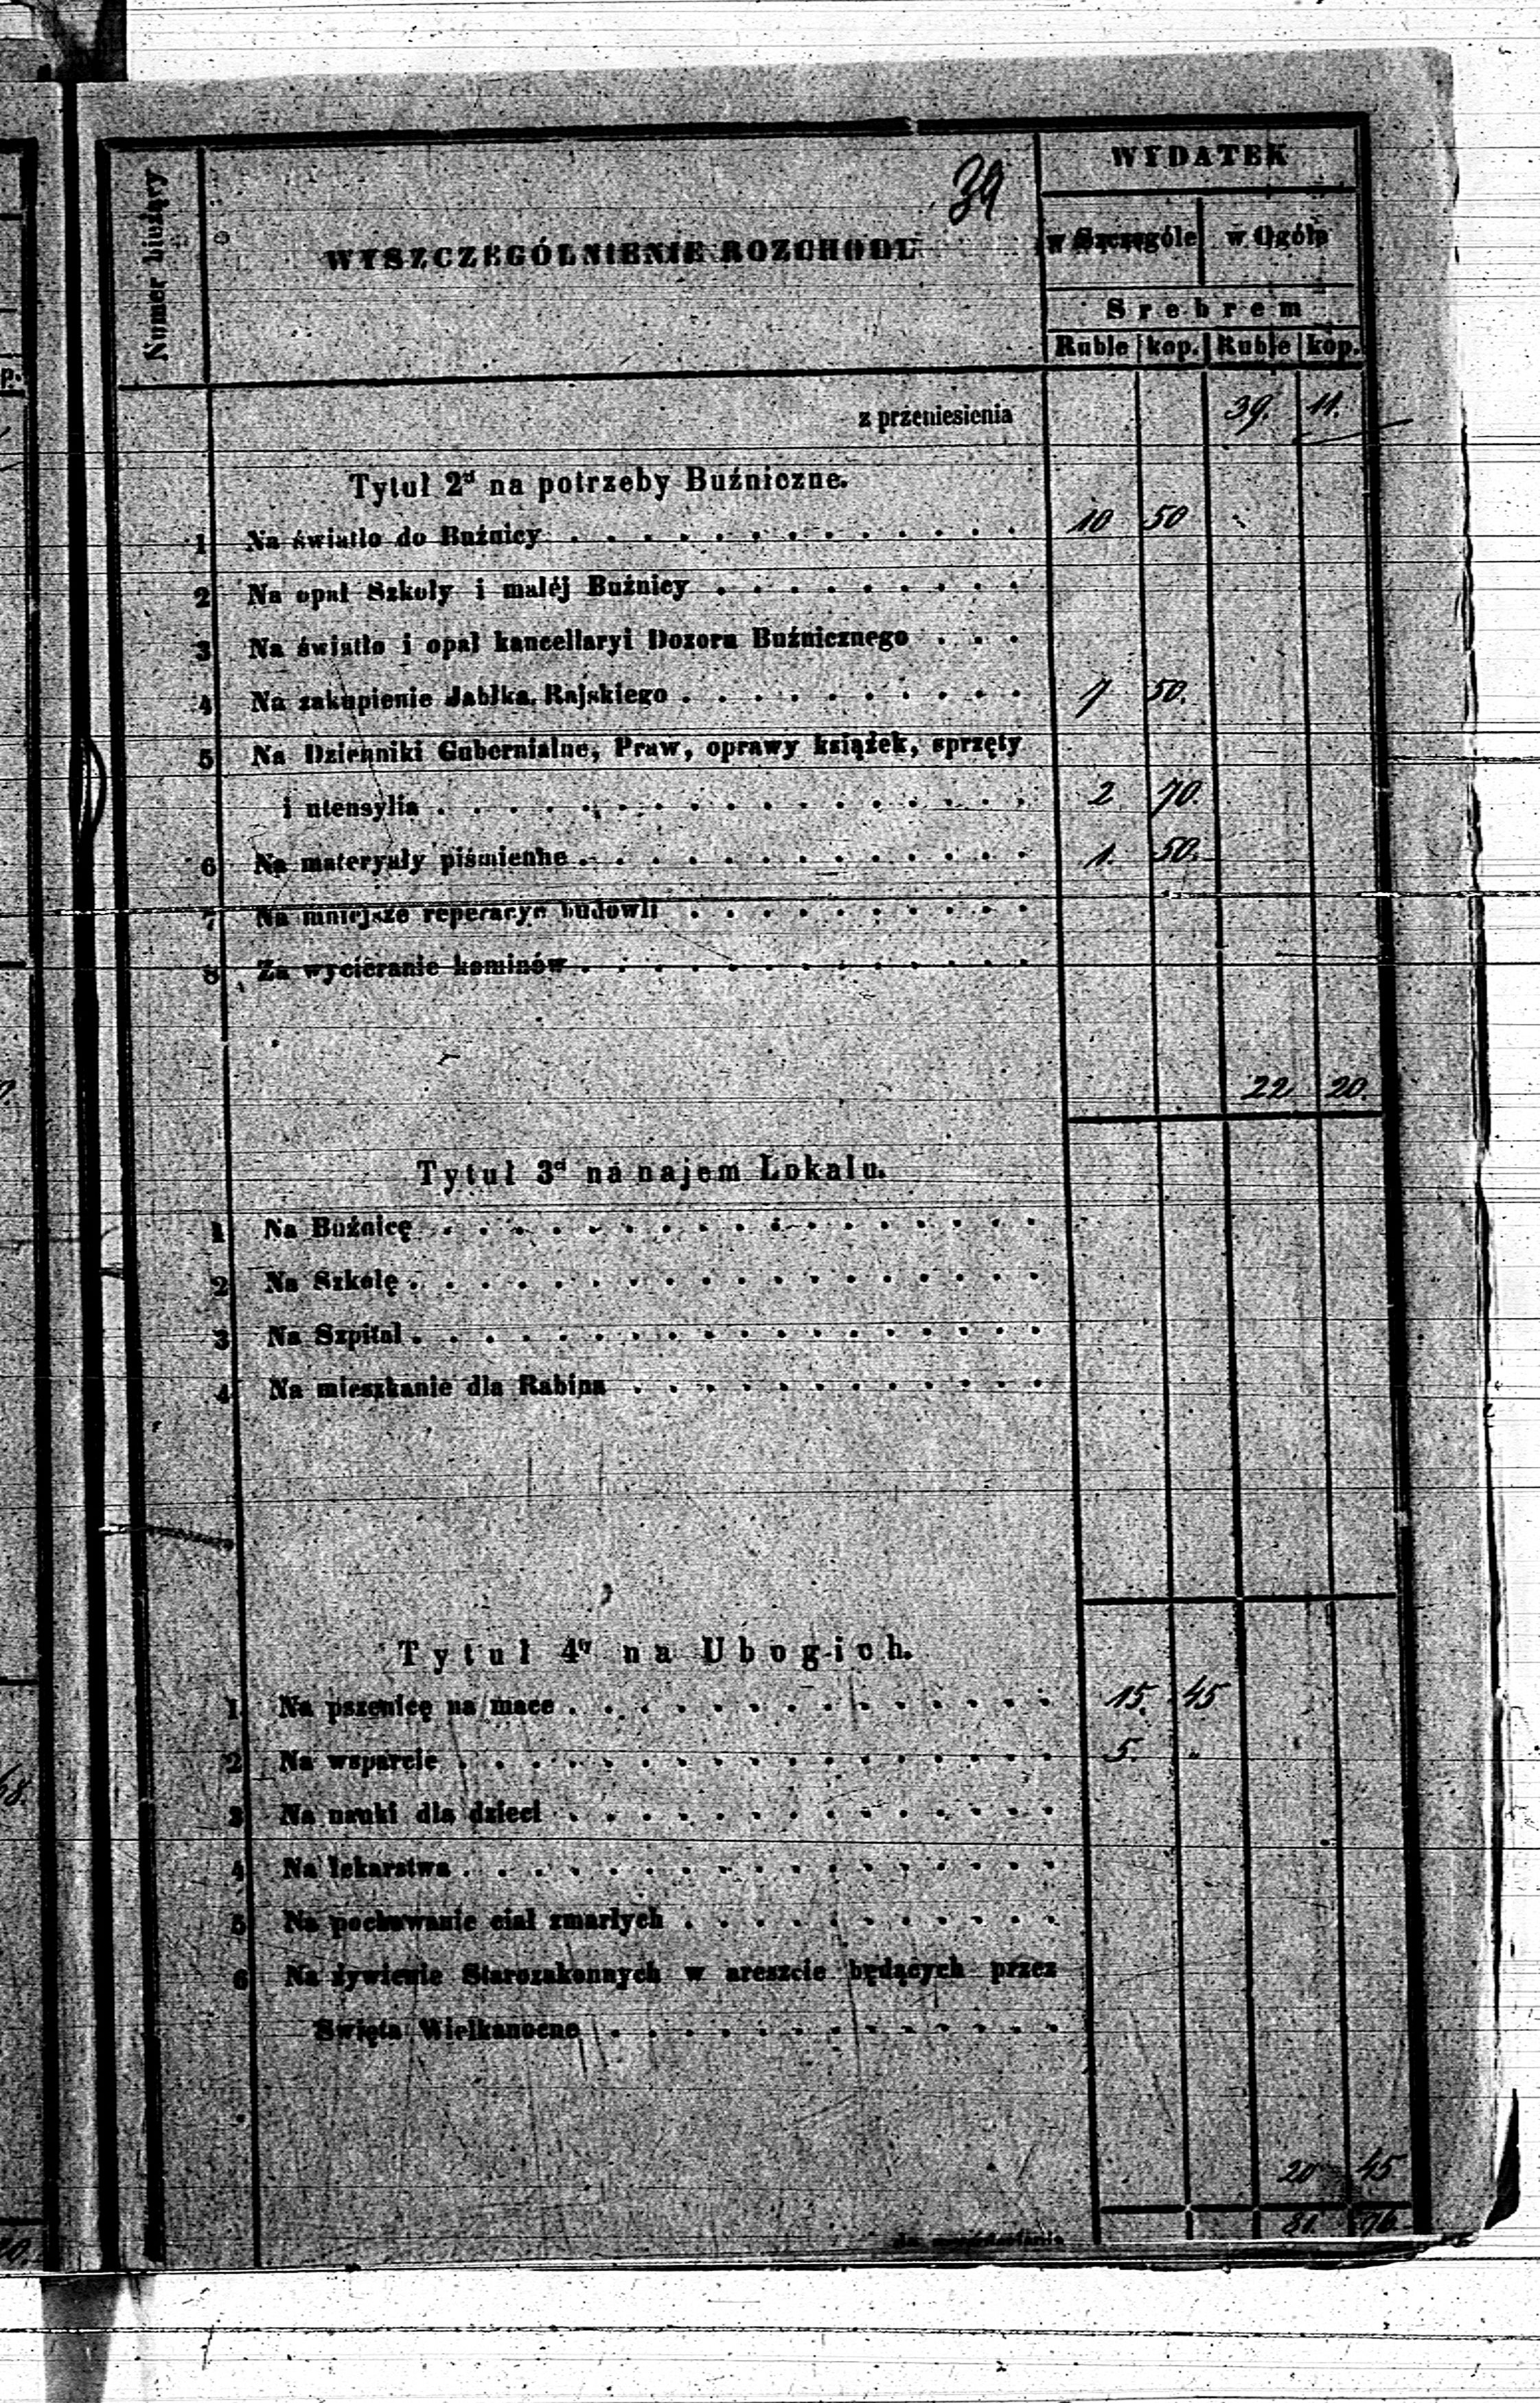 34
Numer bieżący
WYSZCZEGÓLNIENIE ROZCHODU
WYDATEK
w Szczególe w Ogóle
Srebrem
Ruble kop. Ruble kop.
z przeniesienia 39. 11.
Tytuł 2gi na potrzeby Buźniczne.
1 Na światło do Buźnicy 10 50
2 Na opał Szkoły i małéj Buźnicy
3 Na światło i opał kancellaryi Dozoru Buźnicznego
4 Na zakupienie Jabłka Rajskiego 7 50.
5 Na Dzienniki Gubernialne, Praw, oprawy książek, sprzęty
i utensylia 2 70.
6 Na materyały piśmienne 1. 50.
7 Na mniejsze reperacye budowli
8 Za wycieranie kominów
22 20.
Tytuł 3ci na najem Lokalu.
1 Na Buźnicę
2 Na Szkołę
3 Na Szpital
4 Na mieszkanie dla Rabina
Tytuł 4ty na Ubogich.
1 Na pszenicę na mace 15. 45
2 Na wsparcie 5. "
3 Na nauki dla dzieci
4 Na lekarstwa
5 Na pochowanie ciał zmarłych
6 Na żywienie Starozakonnych w areszcie będących przez
Święta Wielkanocne
20 45
81. 76.